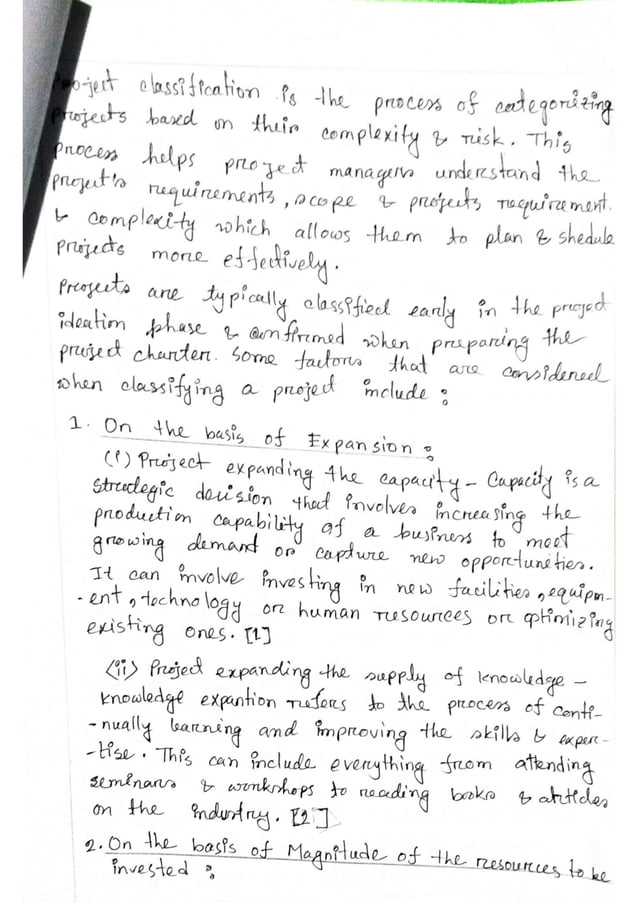 Project classification is the process of categorizing
projects based on their complexity & risk. This
process helps project managers understand the
project's requirements, scope & projects requirement.
& complexity which allows them to plan & shedule
projects more effectively.
Projects are typically classified early in the project
ideation phase & confirmed when preparing the
project charter. Some factors that are considered
when classifying a project include :
1. On the basis of Expansion :
(i) Project expanding the capacity - Capacity is a
strategic decision that involves increasing the
production capability of a business to meet
growing demand or capture new opportunities.
It can involve investing in new facilities, equipm-
-ent, technology or human resources or optimizing
existing ones. [1]
(ii) Project expanding the supply of knowledge -
knowledge expantion refers to the process of conti-
-nually learning and improving the skills & exper-
-tise. This can include everything from attending
seminars & workshops to reading books & articles
on the industry. [2]
2. On the basis of Magnitude of the resources to be
invested :